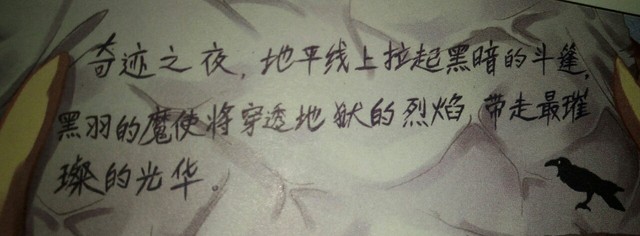 奇迹之夜,地平线上拉起黑暗的斗篷,
黑羽的魔使将穿透地狱的烈焰,带走最璀
璨的光华。